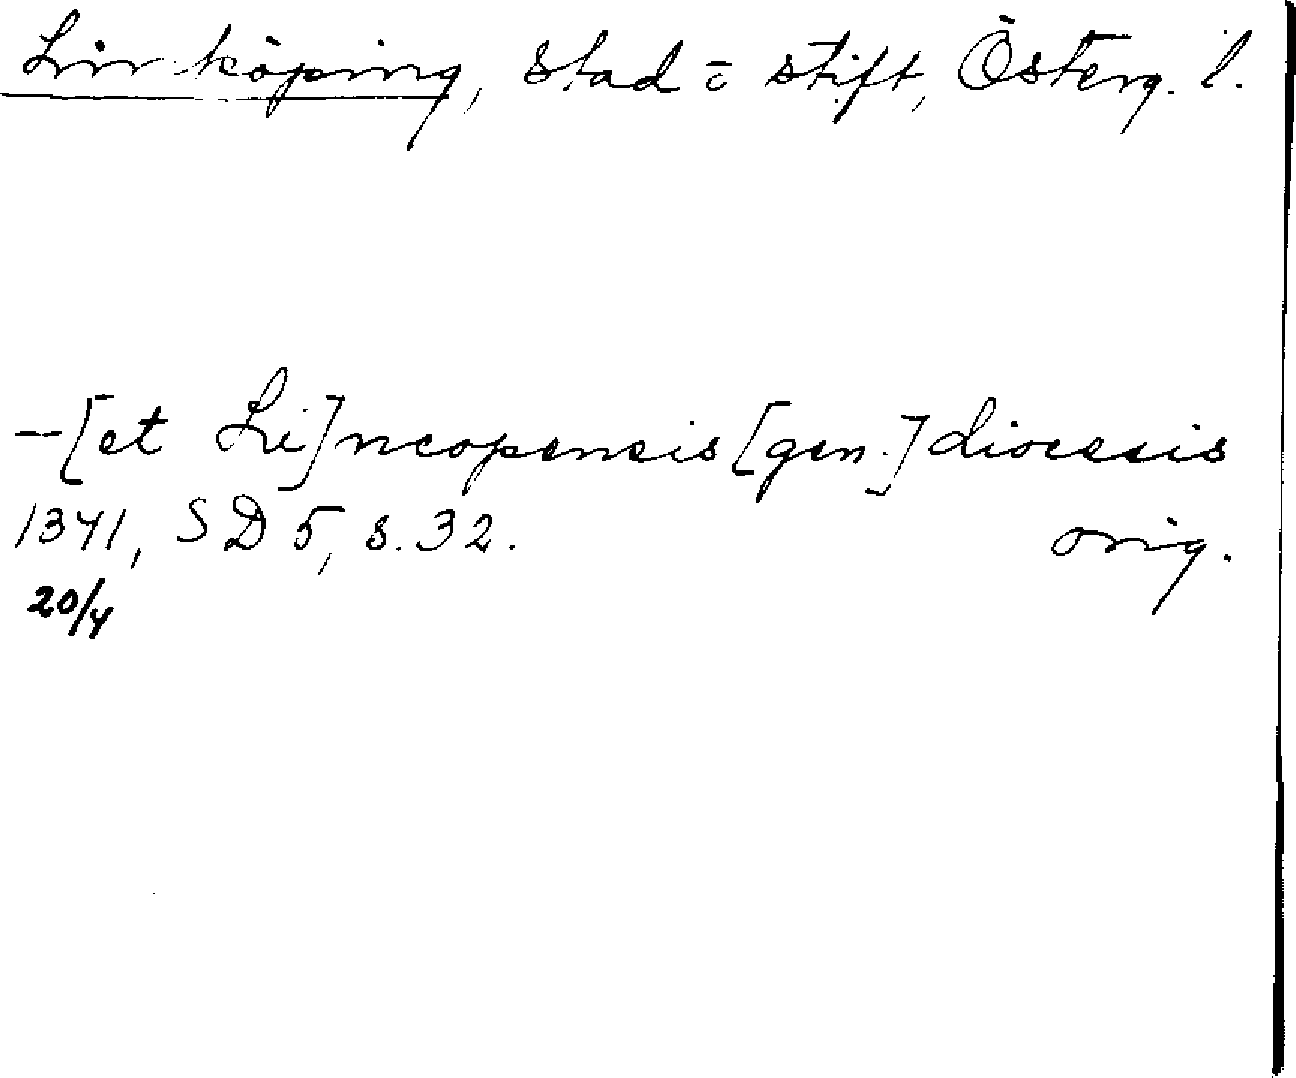 Linköping, stad o stift, Österg. l.
-[et Li]ncopensis [gen.] diocesis
1341, SD 5, s. 32. orig.
20/4